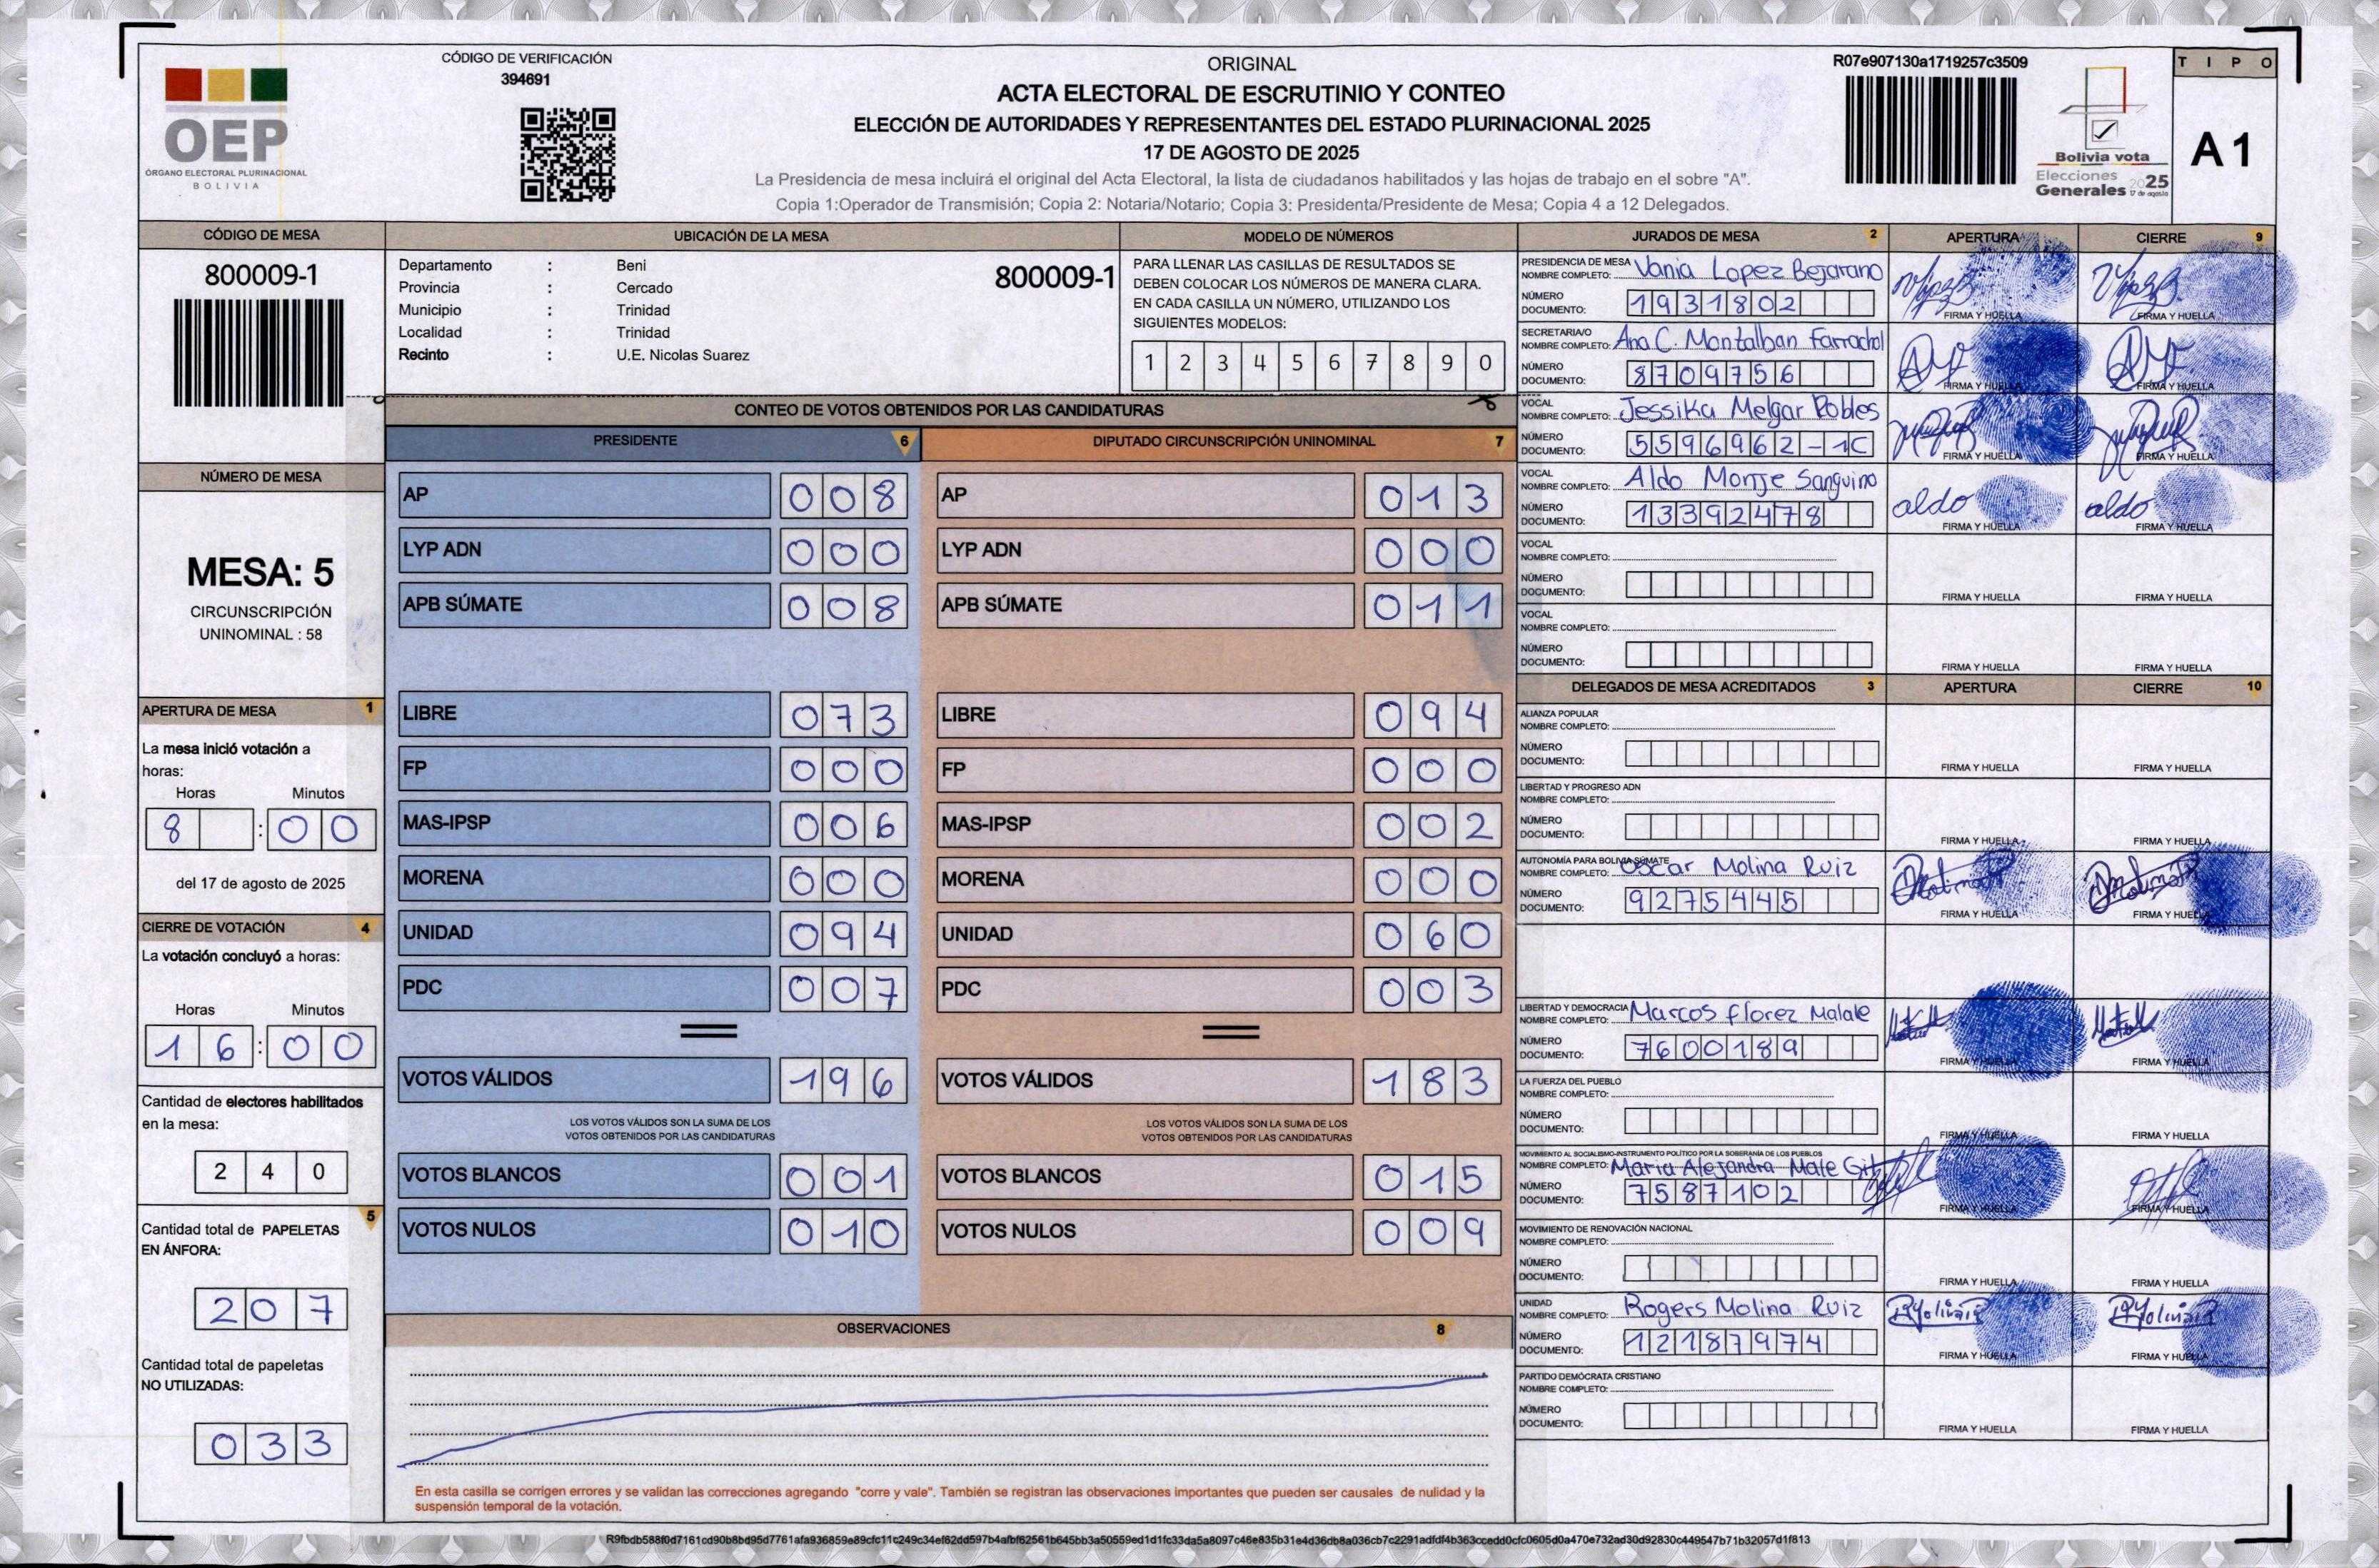 CÓDIGO DE VERIFICACIÓN
394691
OEP
ÓRGANO ELECTORAL PLURINACIONAL
BOLIVIA
ORIGINAL
ACTA ELECTORAL DE ESCRUTINIO Y CONTEO
ELECCIÓN DE AUTORIDADES Y REPRESENTANTES DEL ESTADO PLURINACIONAL 2025
17 DE AGOSTO DE 2025
La Presidencia de mesa incluirá el original del Acta Electoral, la lista de ciudadanos habilitados y las hojas de trabajo en el sobre "A".
Copia 1:Operador de Transmisión; Copia 2: Notaria/Notario; Copia 3: Presidenta/Presidente de Mesa; Copia 4 a 12 Delegados.
R07e907130a1719257c3509
Bolivia vota
Elecciones
Generales 2025
17 de agosto
TIPO
A1
CÓDIGO DE MESA
800009-1
UBICACIÓN DE LA MESA
Departamento : Beni
Provincia : Cercado
Municipio : Trinidad
Localidad : Trinidad
Recinto : U.E. Nicolas Suarez
800009-1
MODELO DE NÚMEROS
PARA LLENAR LAS CASILLAS DE RESULTADOS SE
DEBEN COLOCAR LOS NÚMEROS DE MANERA CLARA.
EN CADA CASILLA UN NÚMERO, UTILIZANDO LOS
SIGUIENTES MODELOS:
1 2 3 4 5 6 7 8 9 0
NÚMERO DE MESA
MESA: 5
CIRCUNSCRIPCIÓN
UNINOMINAL : 58
APERTURA DE MESA 1
La mesa inició votación a
horas:
Horas Minutos
8 : 00
del 17 de agosto de 2025
CIERRE DE VOTACIÓN 4
La votación concluyó a horas:
Horas Minutos
16 : 00
Cantidad de electores habilitados
en la mesa:
240
5
Cantidad total de PAPELETAS
EN ÁNFORA:
207
Cantidad total de papeletas
NO UTILIZADAS:
033
CONTEO DE VOTOS OBTENIDOS POR LAS CANDIDATURAS
PRESIDENTE 6
AP 008
LYP ADN 000
APB SÚMATE 008
LIBRE 073
FP 000
MAS-IPSP 006
MORENA 000
UNIDAD 094
PDC 007
VOTOS VÁLIDOS 196
LOS VOTOS VÁLIDOS SON LA SUMA DE LOS
VOTOS OBTENIDOS POR LAS CANDIDATURAS
VOTOS BLANCOS 001
VOTOS NULOS 010
DIPUTADO CIRCUNSCRIPCIÓN UNINOMINAL 7
AP 013
LYP ADN 000
APB SÚMATE 011
LIBRE 094
FP 000
MAS-IPSP 002
MORENA 000
UNIDAD 060
PDC 003
VOTOS VÁLIDOS 183
LOS VOTOS VÁLIDOS SON LA SUMA DE LOS
VOTOS OBTENIDOS POR LAS CANDIDATURAS
VOTOS BLANCOS 015
VOTOS NULOS 009
OBSERVACIONES 8
En esta casilla se corrigen errores y se validan las correcciones agregando "corre y vale". También se registran las observaciones importantes que pueden ser causales de nulidad y la
suspensión temporal de la votación.
JURADOS DE MESA 2 APERTURA CIERRE 9
PRESIDENCIA DE MESA
NOMBRE COMPLETO: Vania Lopez Bejarano
NÚMERO
DOCUMENTO: 1931802
FIRMA Y HUELLA FIRMA Y HUELLA
SECRETARIA/O
NOMBRE COMPLETO: Ana C. Montalban Farrachol
NÚMERO
DOCUMENTO: 8709756
FIRMA Y HUELLA FIRMA Y HUELLA
VOCAL
NOMBRE COMPLETO: Jessika Melgar Robles
NÚMERO
DOCUMENTO: 5596962-1C
FIRMA Y HUELLA FIRMA Y HUELLA
VOCAL
NOMBRE COMPLETO: Aldo Monje Sanguino
NÚMERO
DOCUMENTO: 13392478
aldo aldo
FIRMA Y HUELLA FIRMA Y HUELLA
VOCAL
NOMBRE COMPLETO:
NÚMERO
DOCUMENTO:
FIRMA Y HUELLA FIRMA Y HUELLA
VOCAL
NOMBRE COMPLETO:
NÚMERO
DOCUMENTO:
FIRMA Y HUELLA FIRMA Y HUELLA
DELEGADOS DE MESA ACREDITADOS 3 APERTURA CIERRE 10
ALIANZA POPULAR
NOMBRE COMPLETO:
NÚMERO
DOCUMENTO:
FIRMA Y HUELLA FIRMA Y HUELLA
LIBERTAD Y PROGRESO ADN
NOMBRE COMPLETO:
NÚMERO
DOCUMENTO:
FIRMA Y HUELLA FIRMA Y HUELLA
AUTONOMÍA PARA BOLIVIA SÚMATE
NOMBRE COMPLETO: Oscar Molina Ruiz
NÚMERO
DOCUMENTO: 9275445
FIRMA Y HUELLA FIRMA Y HUELLA
LIBERTAD Y DEMOCRACIA
NOMBRE COMPLETO: Marcos Florez Malale
NÚMERO
DOCUMENTO: 7600189
FIRMA Y HUELLA FIRMA Y HUELLA
LA FUERZA DEL PUEBLO
NOMBRE COMPLETO:
NÚMERO
DOCUMENTO:
FIRMA Y HUELLA FIRMA Y HUELLA
MOVIMIENTO AL SOCIALISMO-INSTRUMENTO POLÍTICO POR LA SOBERANÍA DE LOS PUEBLOS
NOMBRE COMPLETO: Maria Alejandra Male Gil
NÚMERO
DOCUMENTO: 7587102
FIRMA Y HUELLA FIRMA Y HUELLA
MOVIMIENTO DE RENOVACIÓN NACIONAL
NOMBRE COMPLETO:
NÚMERO
DOCUMENTO:
FIRMA Y HUELLA FIRMA Y HUELLA
UNIDAD
NOMBRE COMPLETO: Rogers Molina Ruiz
NÚMERO
DOCUMENTO: 12187974
FIRMA Y HUELLA FIRMA Y HUELLA
PARTIDO DEMÓCRATA CRISTIANO
NOMBRE COMPLETO:
NÚMERO
DOCUMENTO:
FIRMA Y HUELLA FIRMA Y HUELLA